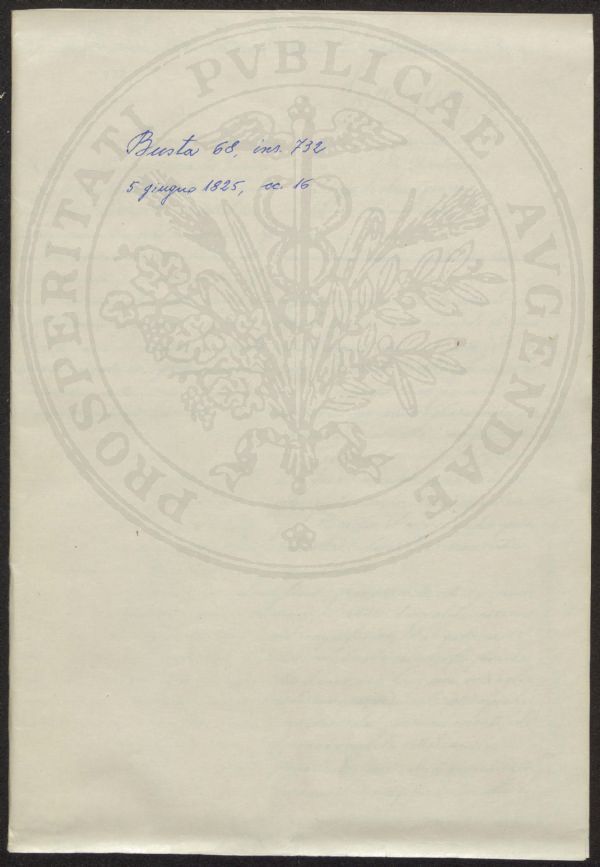 Busta 68, ins. 732
5 giugno 1825, cc. 16
PROSPERITATI PVBLICAE AVGENDAE